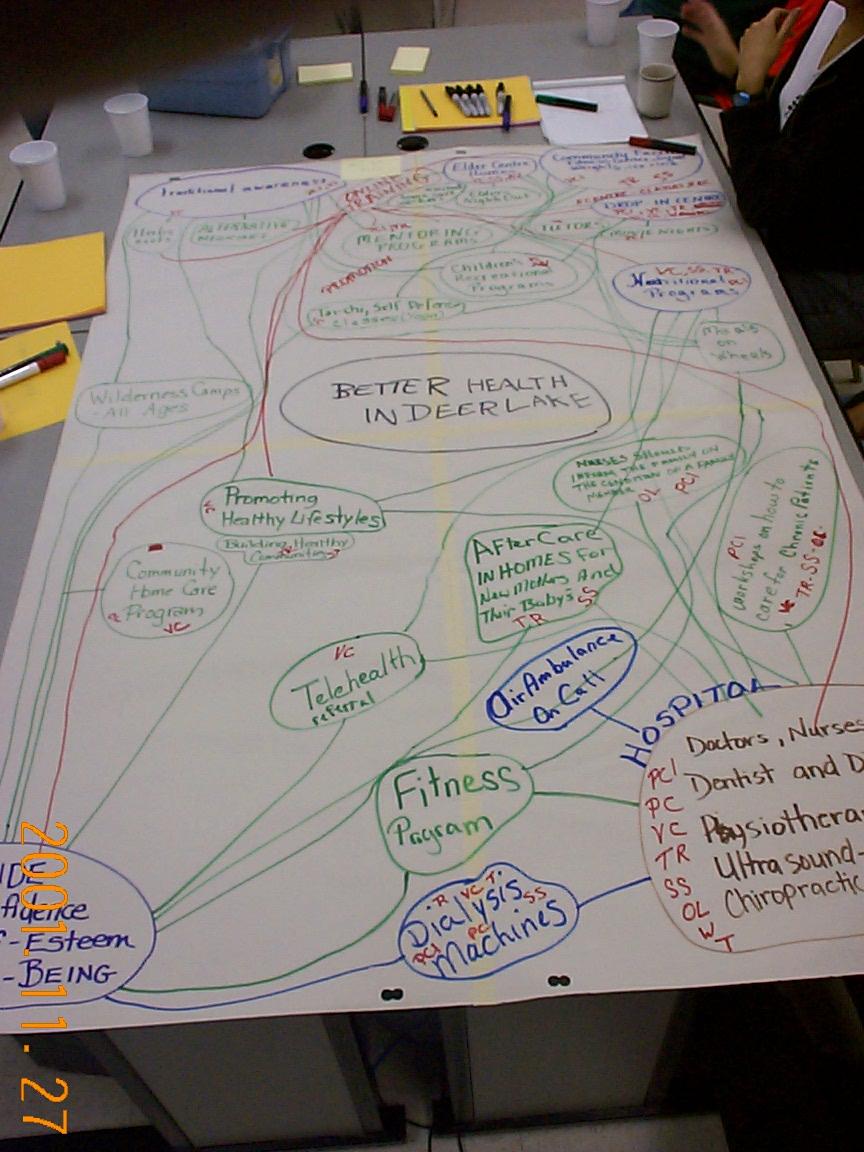 Traditional awareness
ONLINE
TRAINING
Elder Centre
DROP IN CENTRE
ALTERNATIVE
MENTORING
PROGRAMS
TUTORS
MOVIE NIGHTS
PROMOTION
Children's
Recreational
Programs
VC, SS, TR
Nutritional
Programs
Tai-chi, Self Defence
Classes (Yoga)
Meals
on
Wheels
Wilderness Camps
- All Ages
BETTER HEALTH
IN DEER LAKE
INFORM THE FAMILY ON
THE CONDITION OF A FAMILY
MEMBER
OL PCI
Promoting
Healthy Lifestyles
Building Healthy
Communities
AfterCare
IN HOMES For
New Mothers And
Their Baby's
SS
TR
PCI
workshops on how to
care for Chronic Patients
VC TR-SS-OL
Community
Home Care
Program
VC
VC
Telehealth
referral
Air Ambulance
On Call
HOSPITAL
Doctors, Nurses
Dentist and D
Physiothera
Ultrasound-
Chiropractic
PCI
PC
VC
TR
SS
OL
W
T
Fitness
Program
IDE
fidence
f-Esteem
-BEING
R VC T
Dialysis SS
PCI PC
Machines
2001.11.27